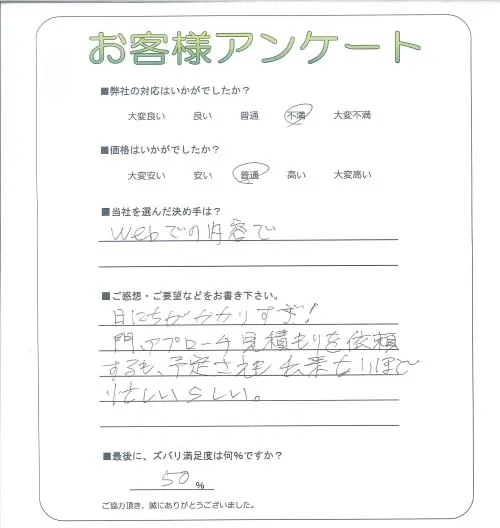 お客様アンケート
■弊社の対応はいかがでしたか？
大変良い 良い 普通 不満 大変不満
■価格はいかがでしたか？
大変安い 安い 普通 高い 大変高い
■当社を選んだ決め手は？
Webでの内容で
■ご感想・ご要望などをお書き下さい。
日にちがかかりすぎ!
門、アプローチ見積もりを依頼
するも、予定さえも出来ないほど
忙しいらしい。
■最後に、ズバリ満足度は何%ですか？
50 %
ご協力頂き、誠にありがとうございました。